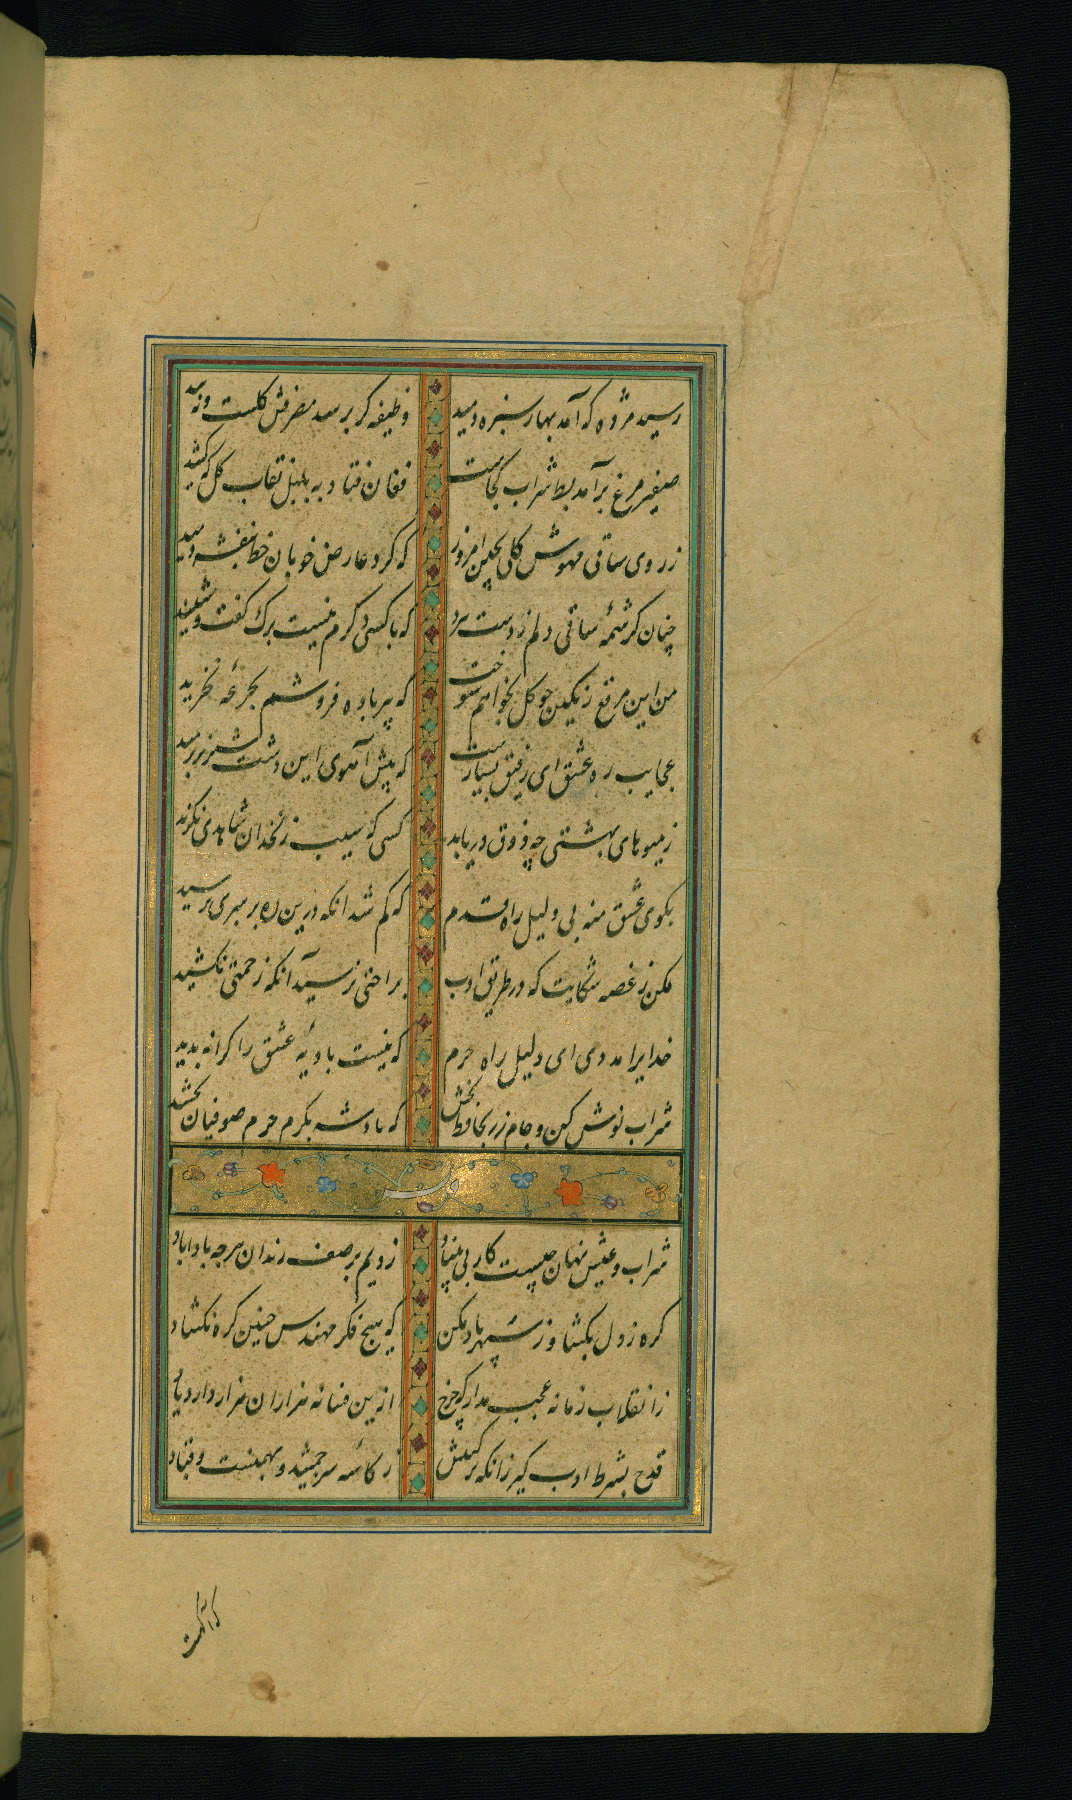 رسید مژده که آمد بهار سبزه دمید وظیفه گر برسد مصرفش گلست و نبید
صفیر مرغ برآمد بط شراب کجاست فغان فتاد به بلبل نقاب گل که کشید
ز روی ساقی مهوش گلی بچین امروز که گرد عارض خوبان خط بنفشه دمید
چنان کرشمهٔ ساقی دلم ز دست ببرد که با کسی دگرم نیست برگ گفت و شنید
من این مرقع رنگین چو گل بخواهم سوخت که پیر باده فروشم بجرعهٔ نخرید
عجایب ره عشق ای رفیق بسیارست که پیش آهوی این دشت شیر نر برمید
ز میوهای بهشتی چه ذوق دریابد کسی که سیب زنخدان شاهدی نگزید
بکوی عشق منه بی دلیل راه قدم که گم شد آنکه درین ره برهبری نرسید
مکن ز غصه شکایت که در طریق ادب براحتی نرسید آنکه زحمتی نکشید
خدایرا مددی ای دلیل راه حرم که نیست بادیهٔ عشق را کرانه پدید
شراب نوش کن و جام زر بحافظ بخش که پادشه بکرم جرم صوفیان بخشید
شراب و عیش نهان چیست کار بی بنیاد زدیم بر صف رندان هرچه باداباد
گره ز دل بگشا وز سپهر یاد مکن که هیچ فکر مهندس چنین گره نگشاد
ز انقلاب زمانه عجب مدار که چرخ ازین فسانه هزاران هزار دارد یاد
قدح بشرط ادب گیر زانکه ترکیبش ز کاسهٔ سر جمشید و بهمنست و قباد
که آگهست